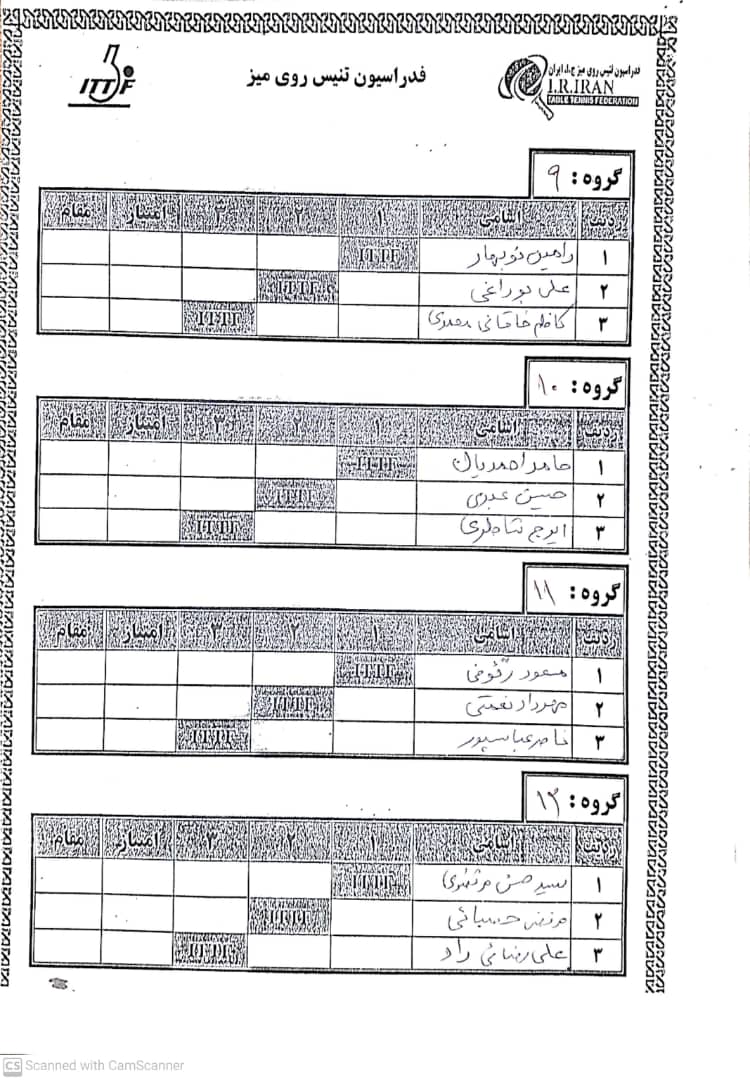 ITTF
فدراسیون تنیس روی میز
فدراسیون تنیس روی میز ج.ا.ایران
I.R.IRAN
TABLE TENNIS FEDERATION
گروه: ۹
ردیف اسامی ۱ ۲ ۳ امتیاز مقام
۱ رامین نوبهار ITTF
۲ علی ITTF
۳ کاظم خاقانی ITTF
گروه: ۱۰
ردیف اسامی ۱ ۲ ۳ امتیاز مقام
۱ حامد احمدیان ITTF
۲ حسین عبدی ITTF
۳ ایرج شاطری ITTF
گروه: ۱۱
ردیف اسامی ۱ ۲ ۳ امتیاز مقام
۱ مسعود رئوفی ITTF
۲ مهرداد نعمتی ITTF
۳ عباسپور ITTF
گروه: ۱۲
ردیف اسامی ۱ ۲ ۳ امتیاز مقام
۱ سید حسن مرتضوی ITTF
۲ مرتضی ITTF
۳ علی رضائی راد ITTF
CS Scanned with CamScanner